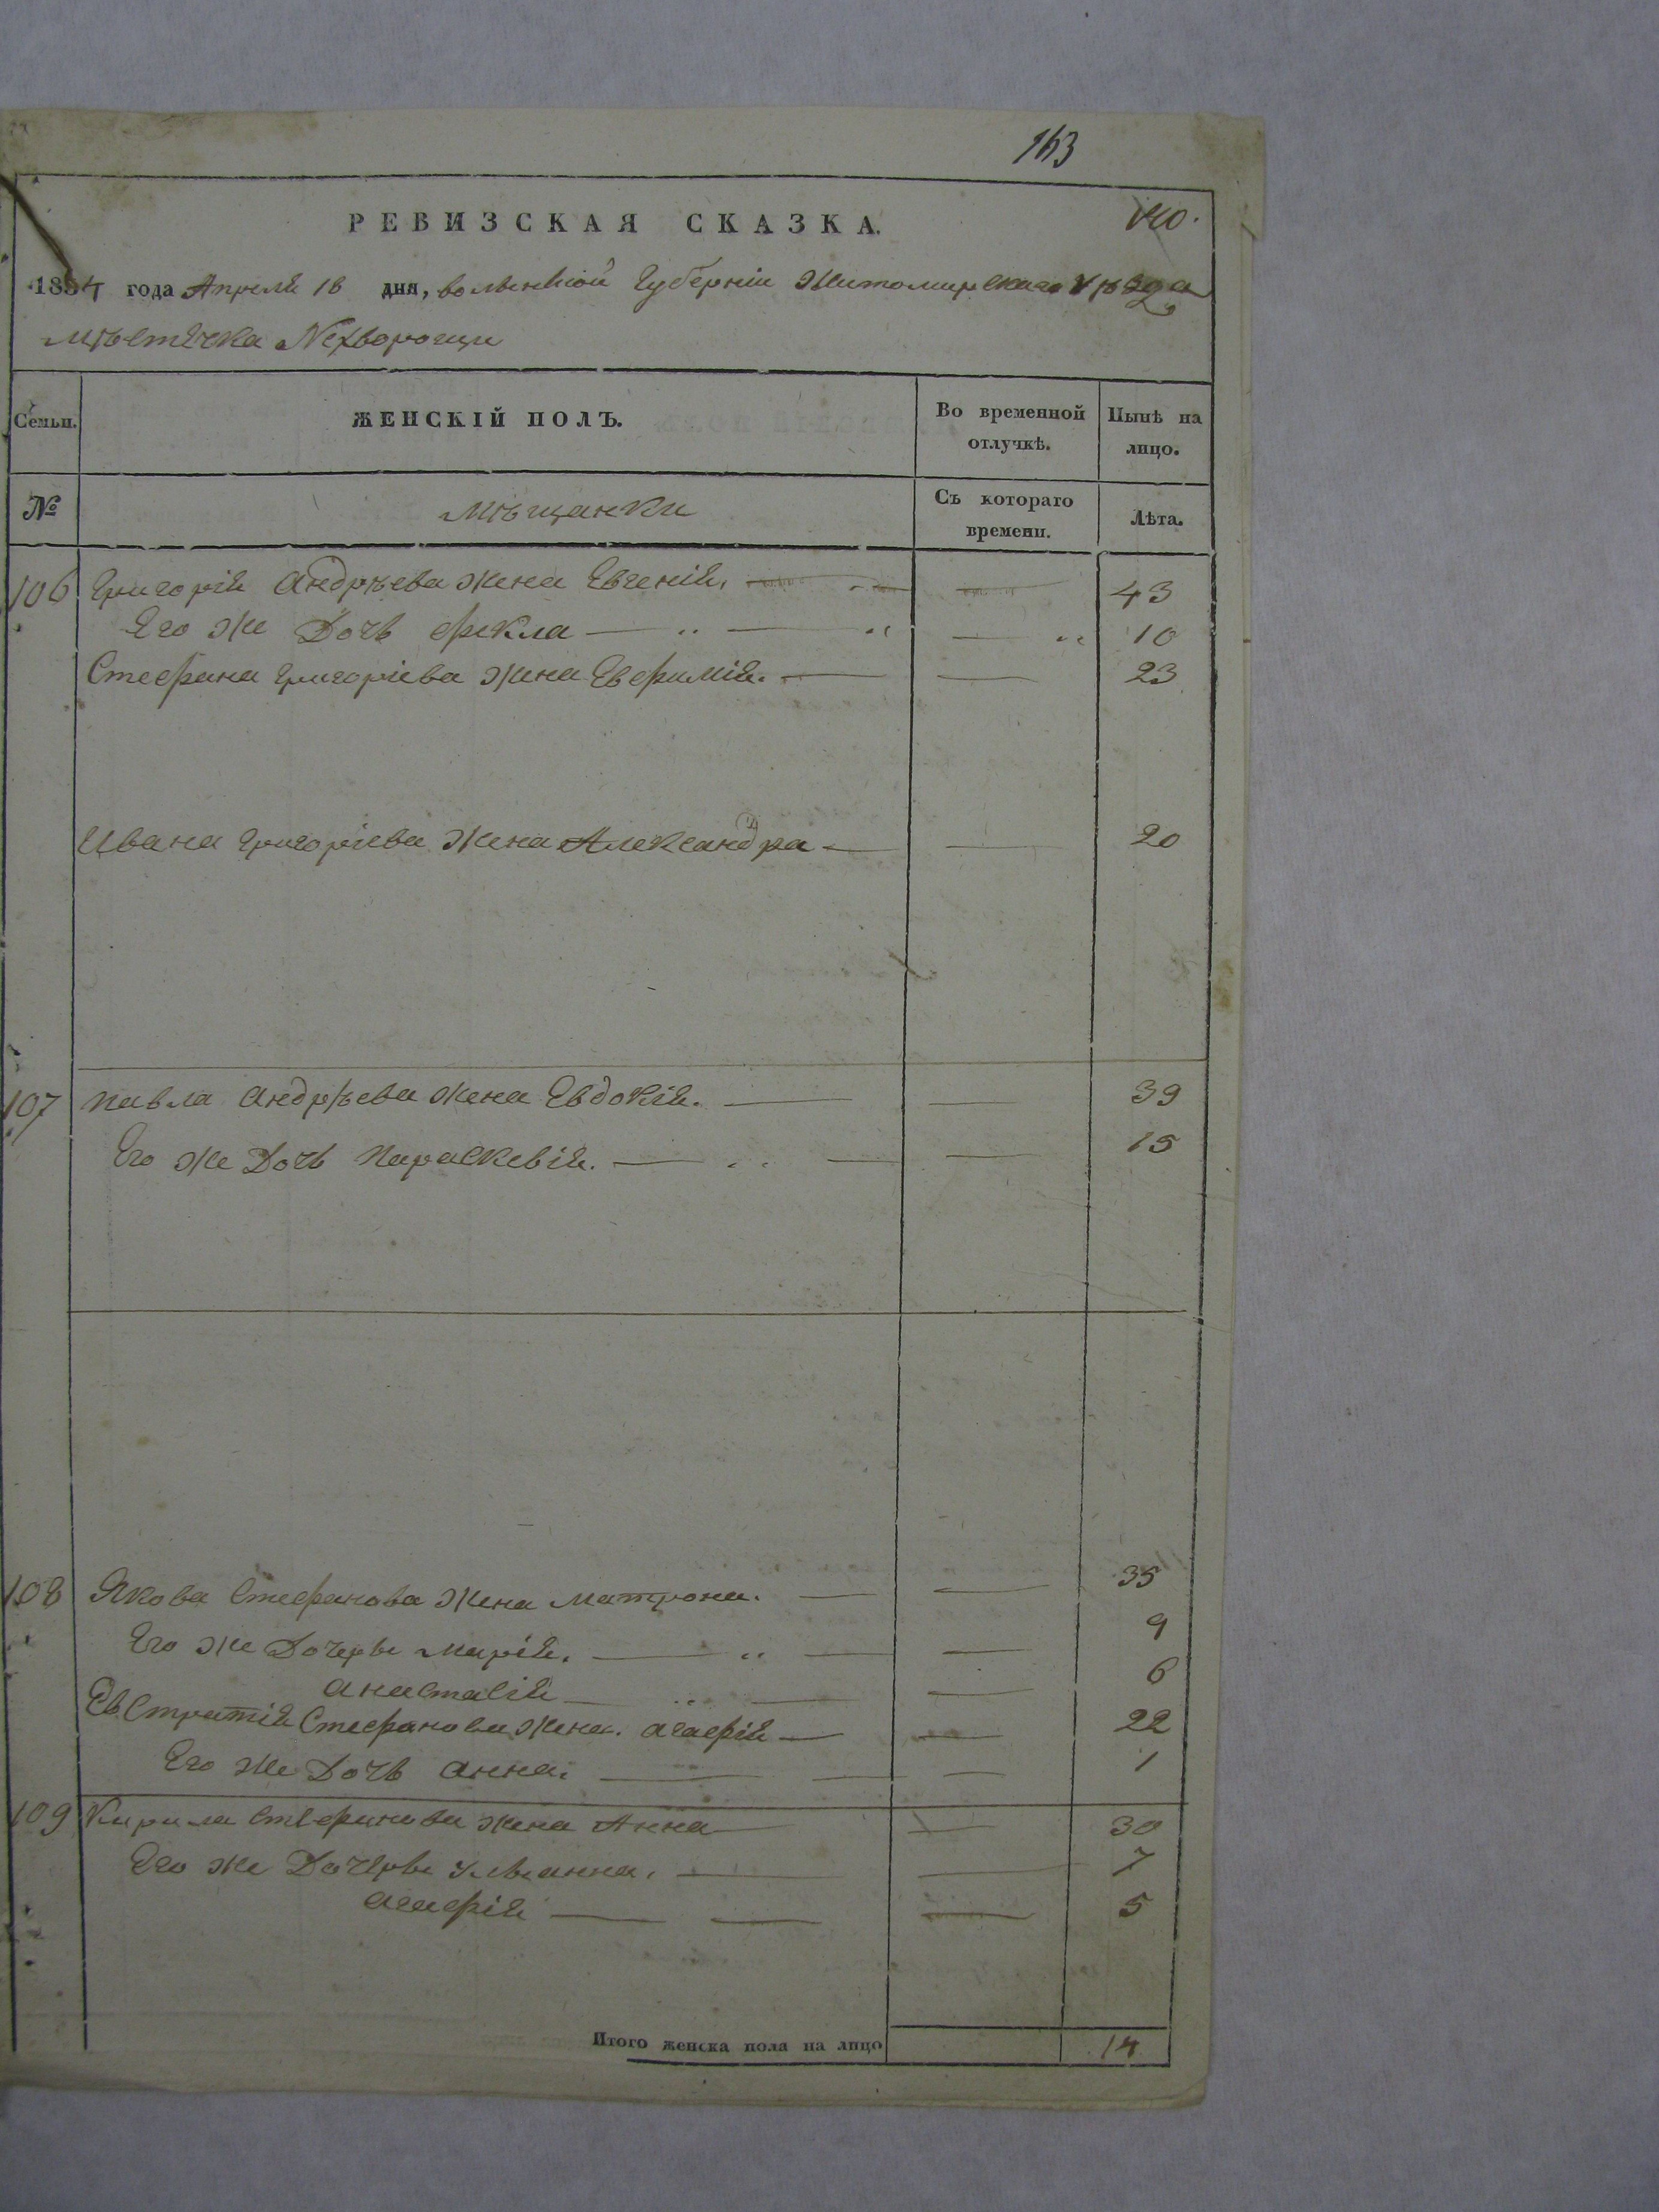 163
РЕВИЗСКАЯ СКАЗКА.
140.
1834 года Апреля 18 дня, волынской Губерніи Житомирскаго Уѣзда
мѣстечка Nехворощи
Семьи.
ЖЕНСКІЙ ПОЛЪ.
Во временной отлучкѣ.
Нынѣ на лицо.
№
мѣщанки
Съ котораго времени.
Лѣта.
106 Григорія Андрѣева жена Евгенія. 43
Его же Дочь Фекла 10
Стефана Григоріева жена Евфимія. 23
Ивана Григоріева жена Александра 20
107 Павла Андрѣева жена Евдокія. 39
Его же Дочь Параскевія. 15
108 Якова Стефанова жена Матрона. 35
Его же Дочеры Марія. 9
Анастасія 6
Евстратія Стефанова жена. Агафія 22
Его же Дочь Анна. 1
109 Кирила Стефанова жена Анна 30
Его же Дочеры Ульянна. 7
Агафія 5
Итого женска пола на лицо 14